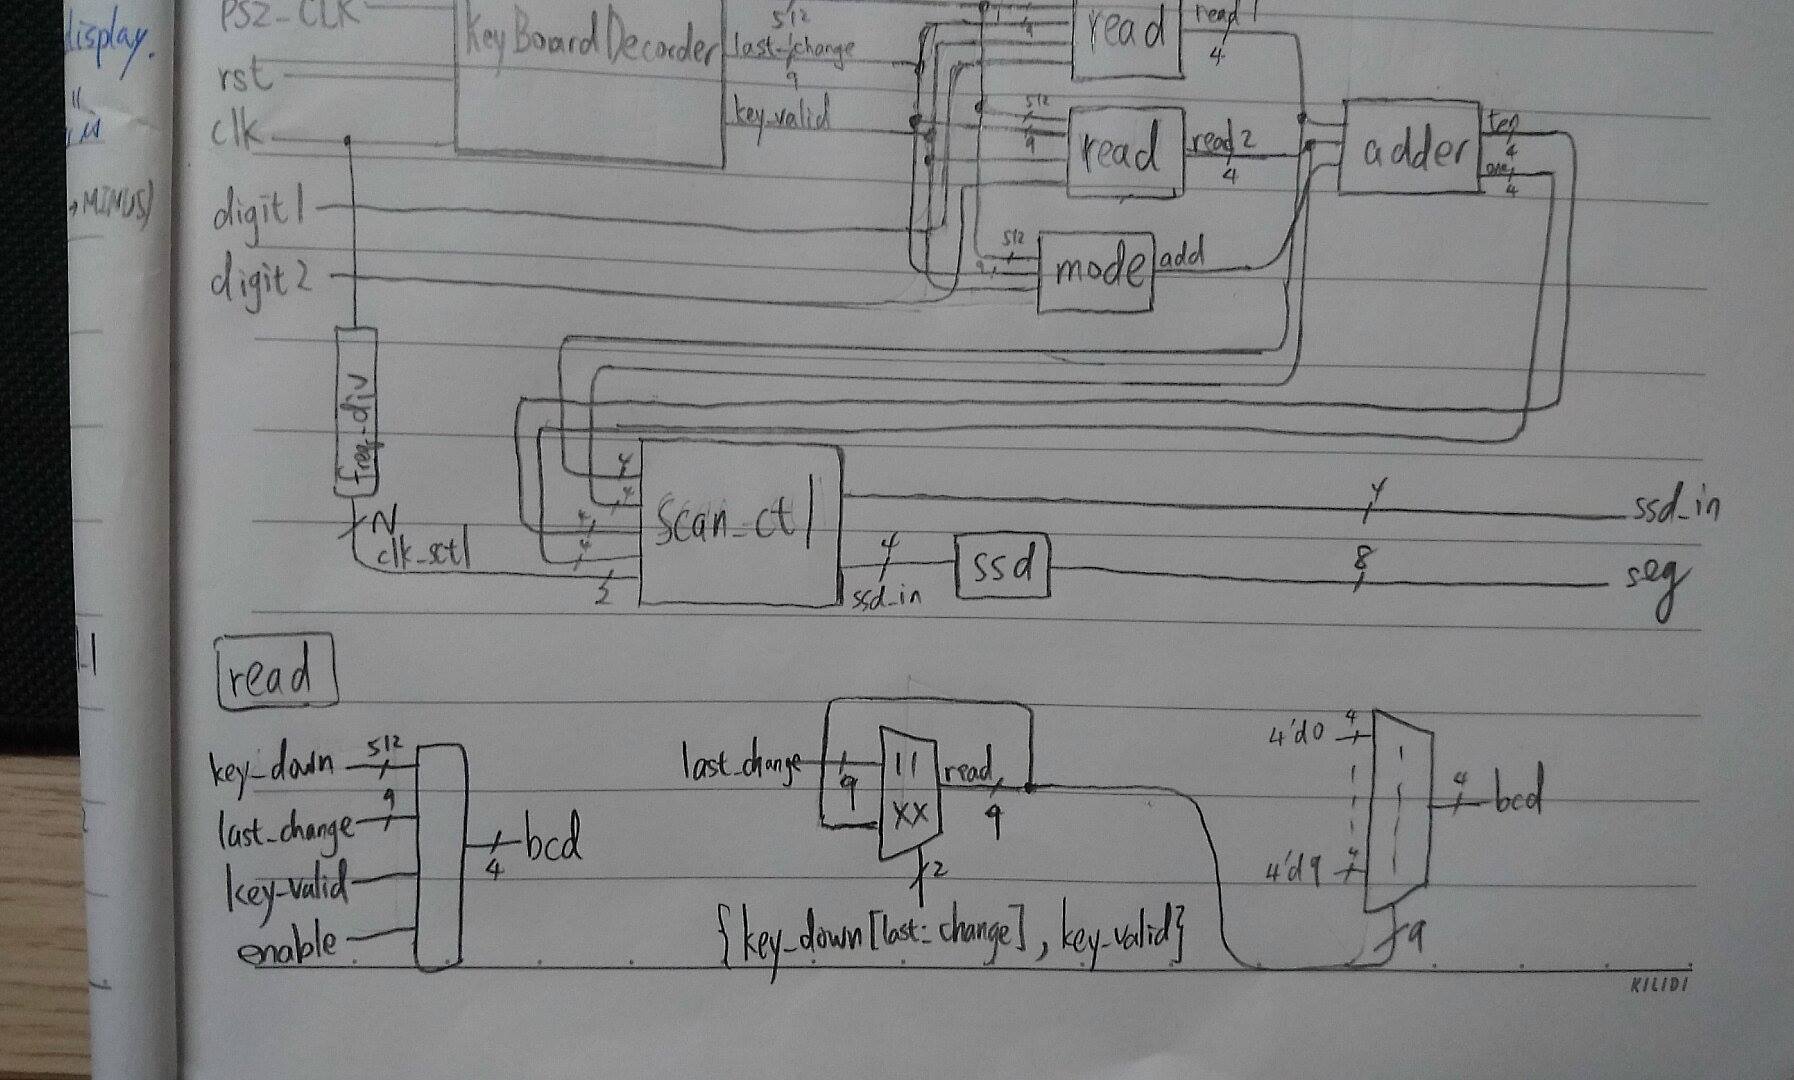 display.
PS2_CLK
rst
clk
digit1
digit2
MINUS)
KeyBoardDecorder
512
last_change
9
key_valid
read
read1
4
512
9
read
read2
4
512
9
mode
add
adder
ten
4
one
4
freq_div
N
clk_sctl
4
4
4
4
2
Scan_ctl
4
ssd_in
4
ssd_in
ssd
8
seg
read
key_down
512
last_change
9
key_valid
enable
4
bcd
last_change
9
11
XX
read
9
2
{key_down[last_change], key_valid}
4'd0
4
4'd9
4
4
bcd
9
KILIDI